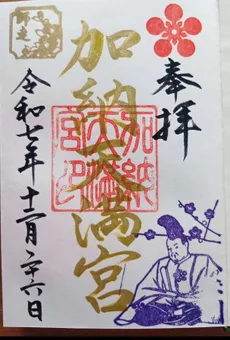 奉拝
加納天満宮
加納天満宮印
令和七年十二月二十六日